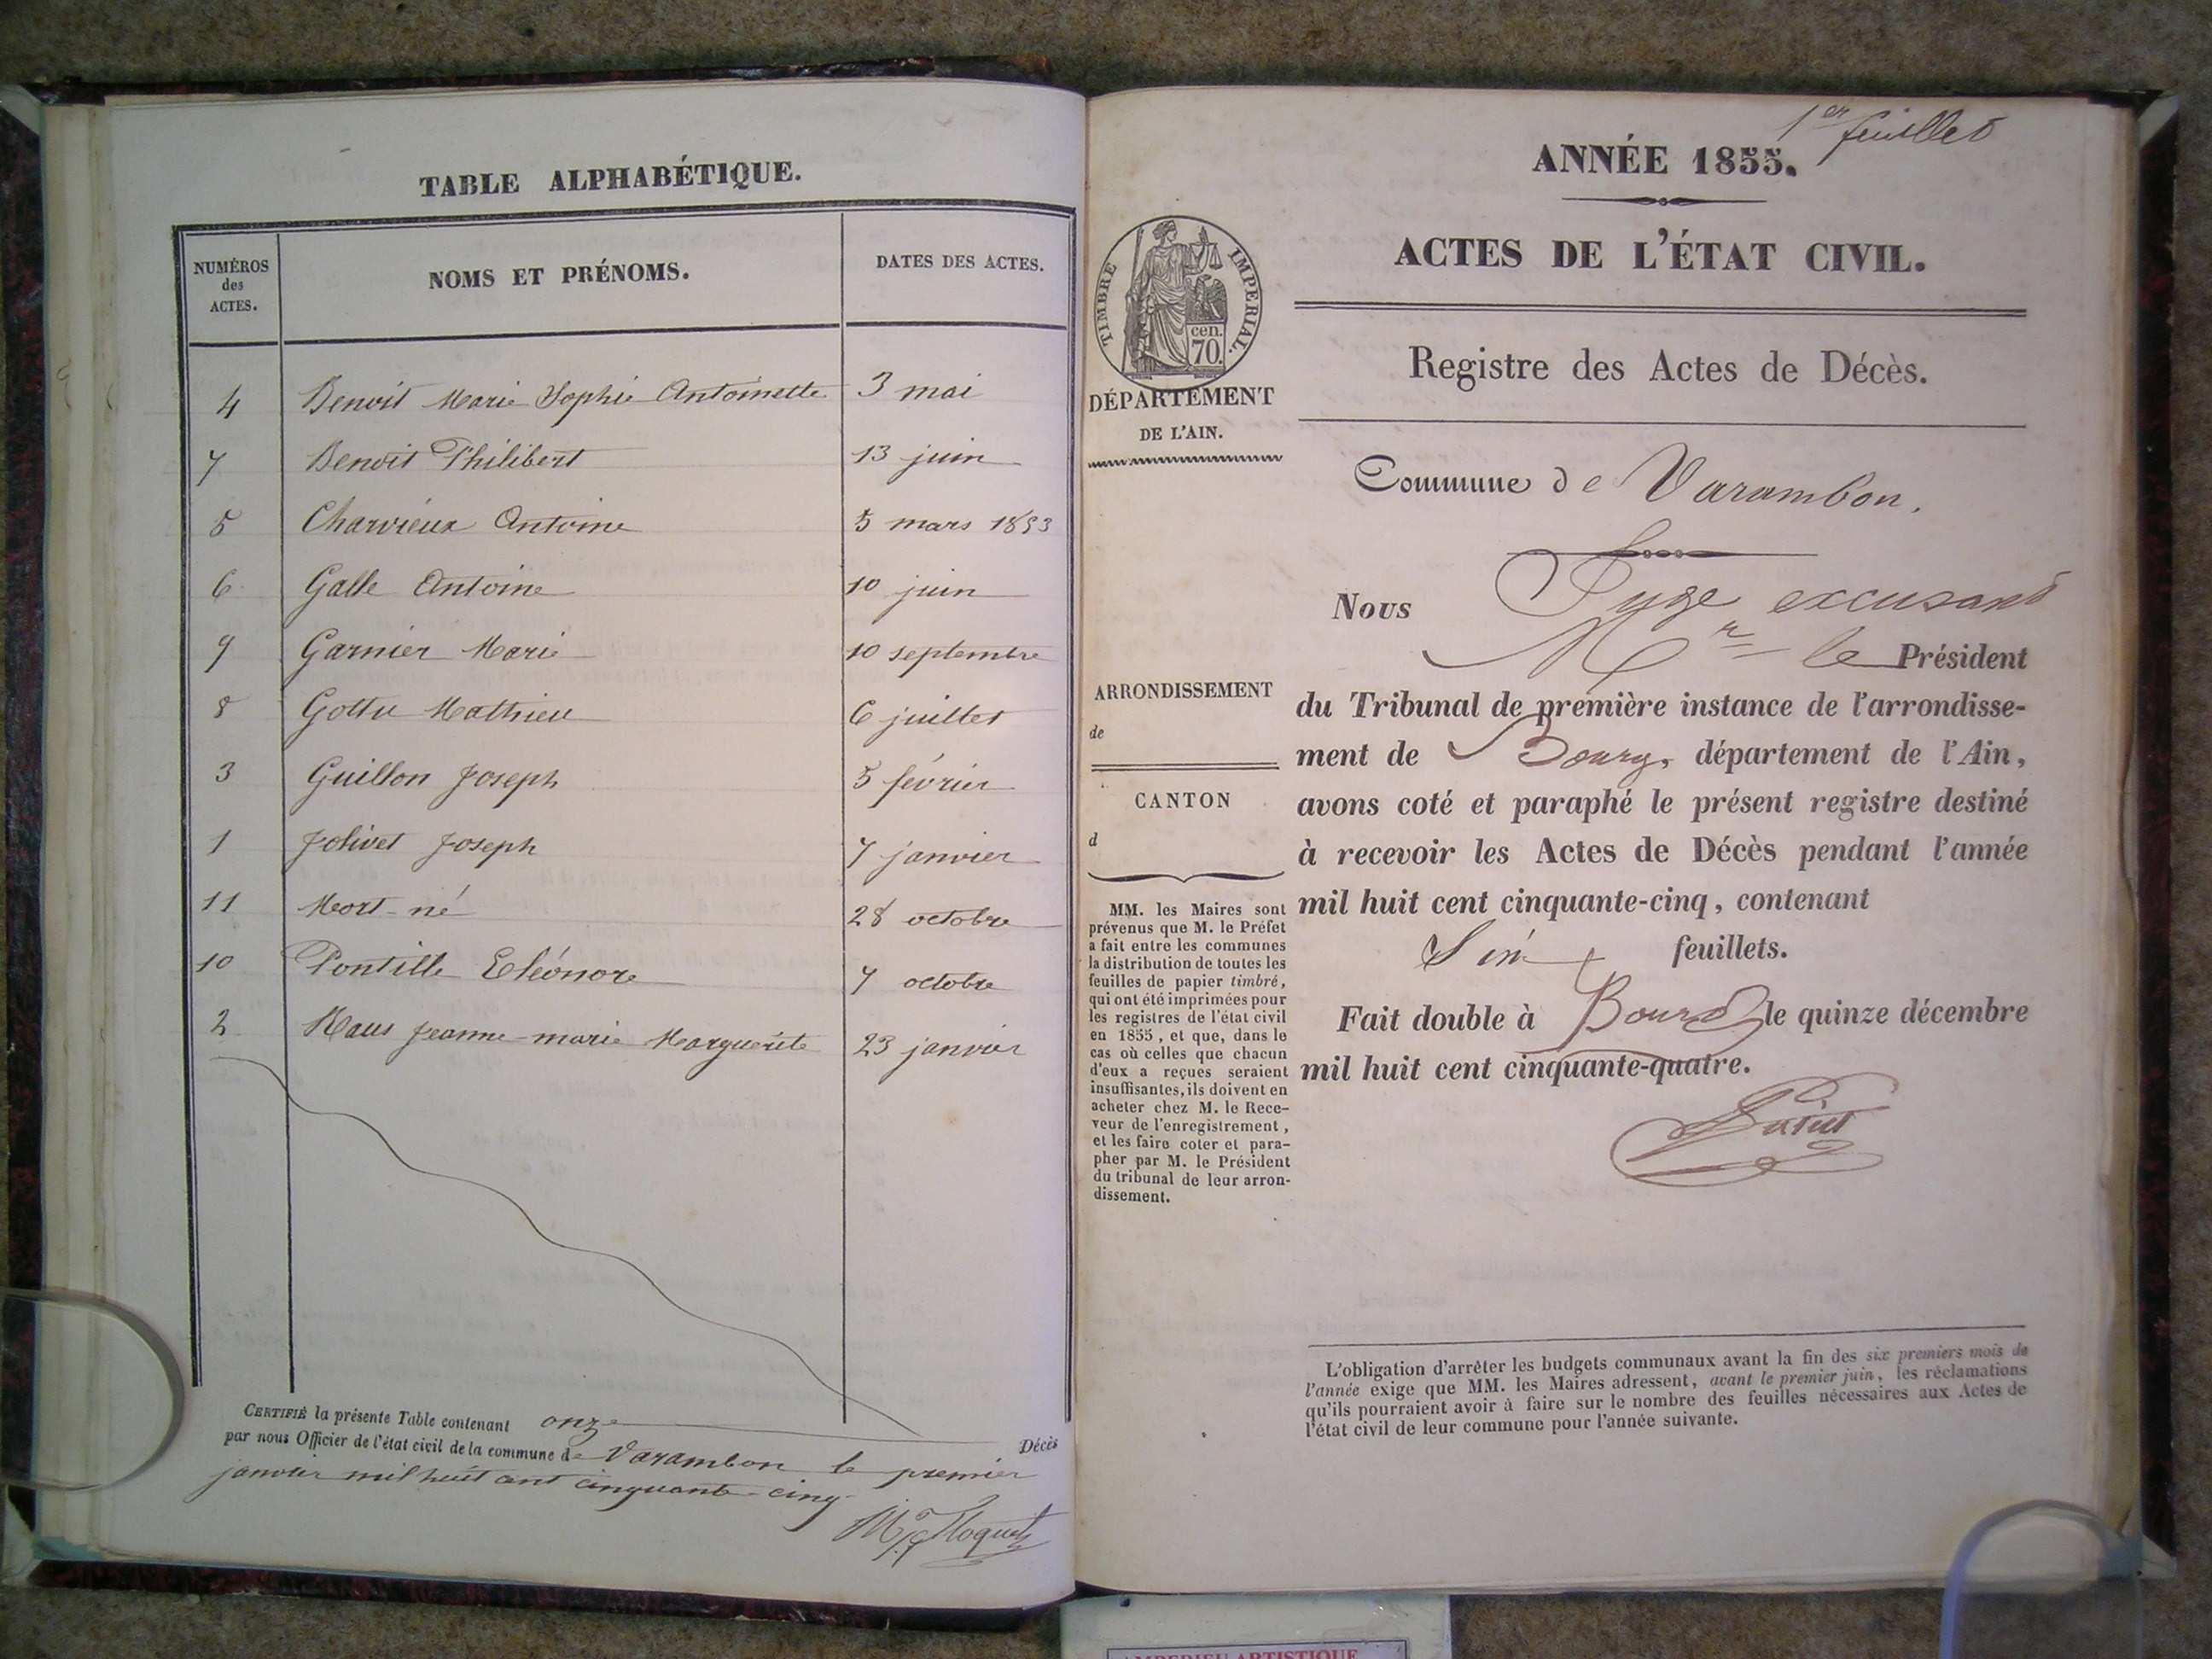 TABLE ALPHABÉTIQUE.
NUMÉROS des ACTES.
NOMS ET PRÉNOMS.
DATES DES ACTES.
4 Benoit Marie Sophie Antoinette 3 mai
7 Benoit Philibert 13 juin
5 Charvieux Antoine 5 mars 1853
6 Galle Antoine 10 juin
9 Garnier Marie 10 septembre
8 Gottu Mathieu 6 juillet
3 Guillon Joseph 5 février
1 Jolivet Joseph 7 janvier
11 Mort-né 28 octobre
10 Pontille Eléonore 7 octobre
2 Jeanne-marie Marguerite 23 janvier
CERTIFIÉ la présente Table contenant onze Décès
par nous Officier de l'état civil de la commune de Varambon le premier
janvier mil huit cent cinquante-cinq
1er feuillet
ANNÉE 1855.
ACTES DE L'ÉTAT CIVIL.
Registre des Actes de Décès.
TIMBRE IMPERIAL.
cen.
70.
DÉPARTEMENT
DE L'AIN.
ARRONDISSEMENT
de
CANTON
d
MM. les Maires sont
prévenus que M. le Préfet
a fait entre les communes
la distribution de toutes les
feuilles de papier timbré,
qui ont été imprimées pour
les registres de l'état civil
en 1855, et que, dans le
cas où celles que chacun
d'eux a reçues seraient
insuffisantes, ils doivent en
acheter chez M. le Rece-
veur de l'enregistrement,
et les faire coter et para-
pher par M. le Président
du tribunal de leur arron-
dissement.
Commune de Varambon.
Nous Juge excusant
Mr le Président
du Tribunal de première instance de l'arrondisse-
ment de Bourg, département de l'Ain,
avons coté et paraphé le présent registre destiné
à recevoir les Actes de Décès pendant l'année
mil huit cent cinquante-cinq, contenant
feuillets.
Fait double à Bourg le quinze décembre
mil huit cent cinquante-quatre.
L'obligation d'arrêter les budgets communaux avant la fin des six premiers mois de
l'année exige que MM. les Maires adressent, avant le premier juin, les réclamations
qu'ils pourraient avoir à faire sur le nombre des feuilles nécessaires aux Actes de
l'état civil de leur commune pour l'année suivante.